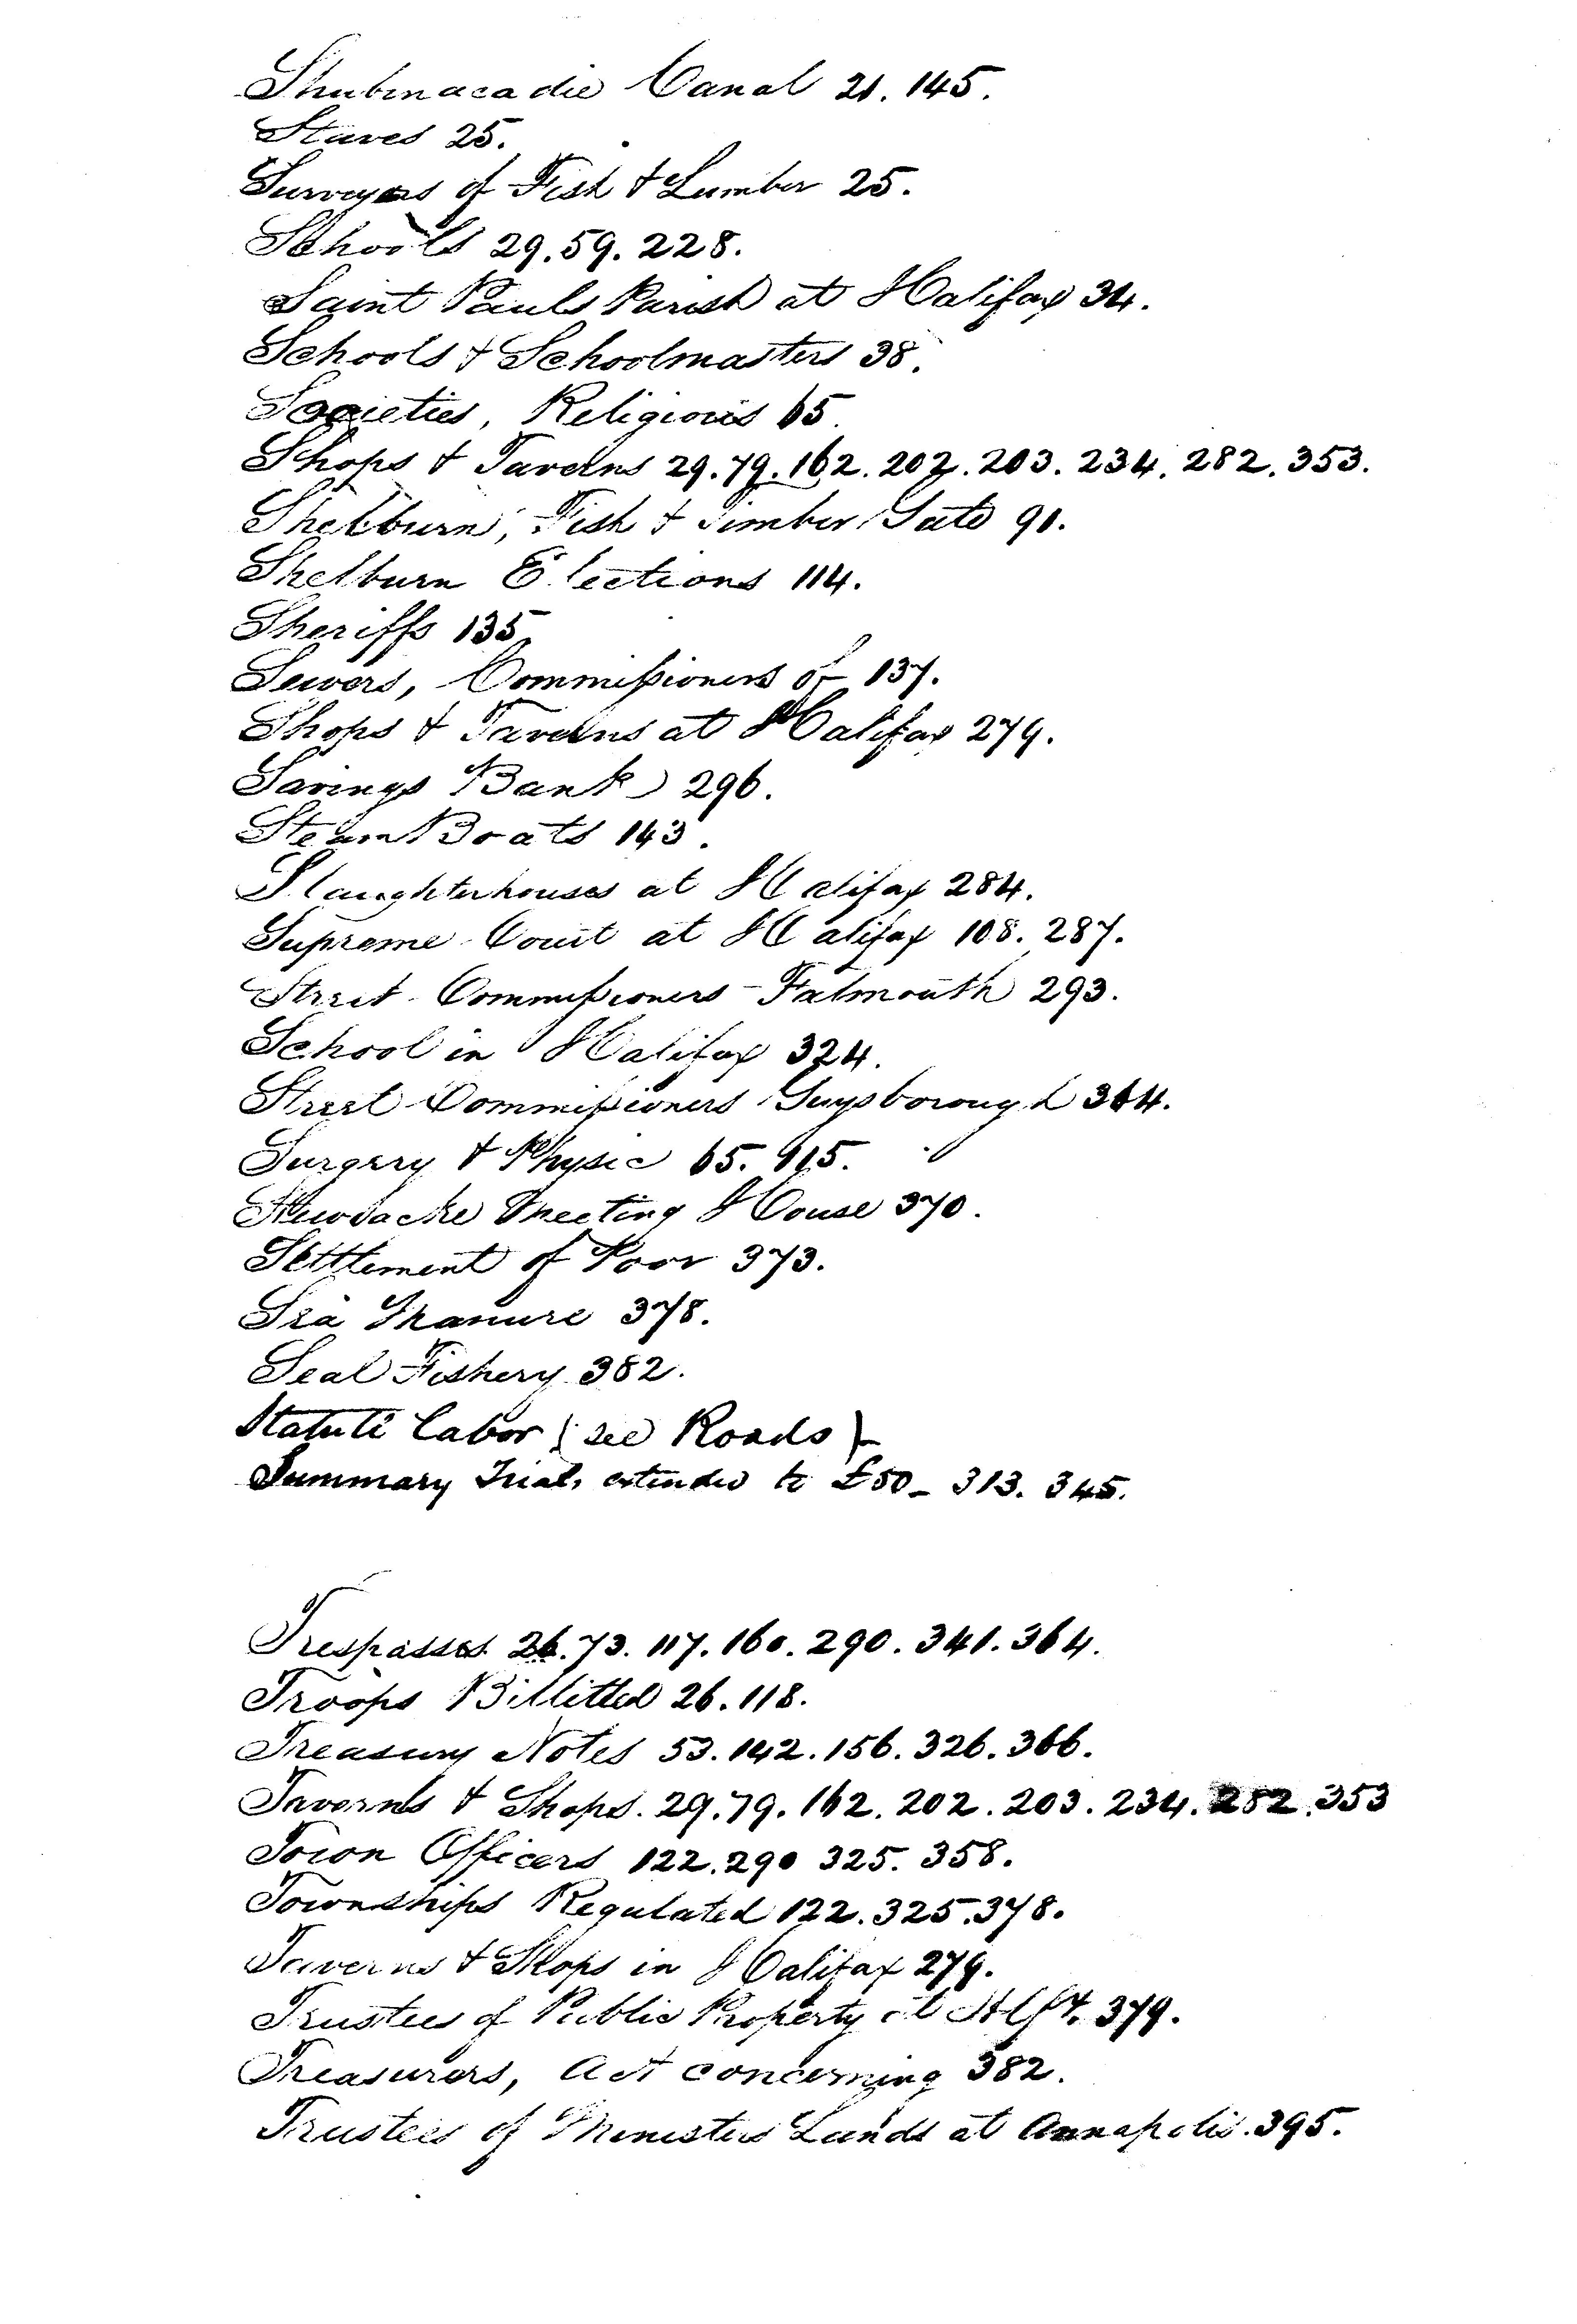 Shubenacadie Canal 21. 145.
Staves 25.
Surveyors of Fish & Lumber 25.
Schools 29. 59. 228.
Saint Pauls Parish at Halifax 34.
Schools & Schoolmasters 38.
Societies, Religious 65.
Shops & Taverns 29. 79. 162. 202. 203. 234. 282. 353.
Shelburn, Fish & Timber 91.
Shelburn Elections 114.
Sheriffs 135
Sewers, Commissioners of 137.
Shops & Taverns at Halifax 279.
Savings Bank 296.
Steam Boats 143.
Slaughterhouses at Halifax 284.
Supreme Court at Halifax 108. 287.
Street Commissioners Falmouth 293.
School in Halifax 324.
Street Commissioners Guysborough 364.
Surgery & Physic 65.
Meeting House 370.
Settlement of Poor 373.
Sea Manure 378.
Seal Fishery 382.
Statute Labor (see Roads)
Summary Trials extended to £50 – 313. 345.
Trespasses 26. 73. 117. 160. 290. 341. 364.
Troops Billitted 26. 118.
Treasury Notes 53. 142. 156. 326. 366.
Taverns & Shops. 29. 79. 162. 202. 203. 234. 282. 353
Town Officers 122. 290 325. 358.
Townships Regulated 122. 325. 378.
Taverns & Shops in Halifax 279.
Trustees of Public Property at Hlfx. 379.
Treasurers, act concerning 382.
Trustees of Ministers Lands at Annapolis. 395.